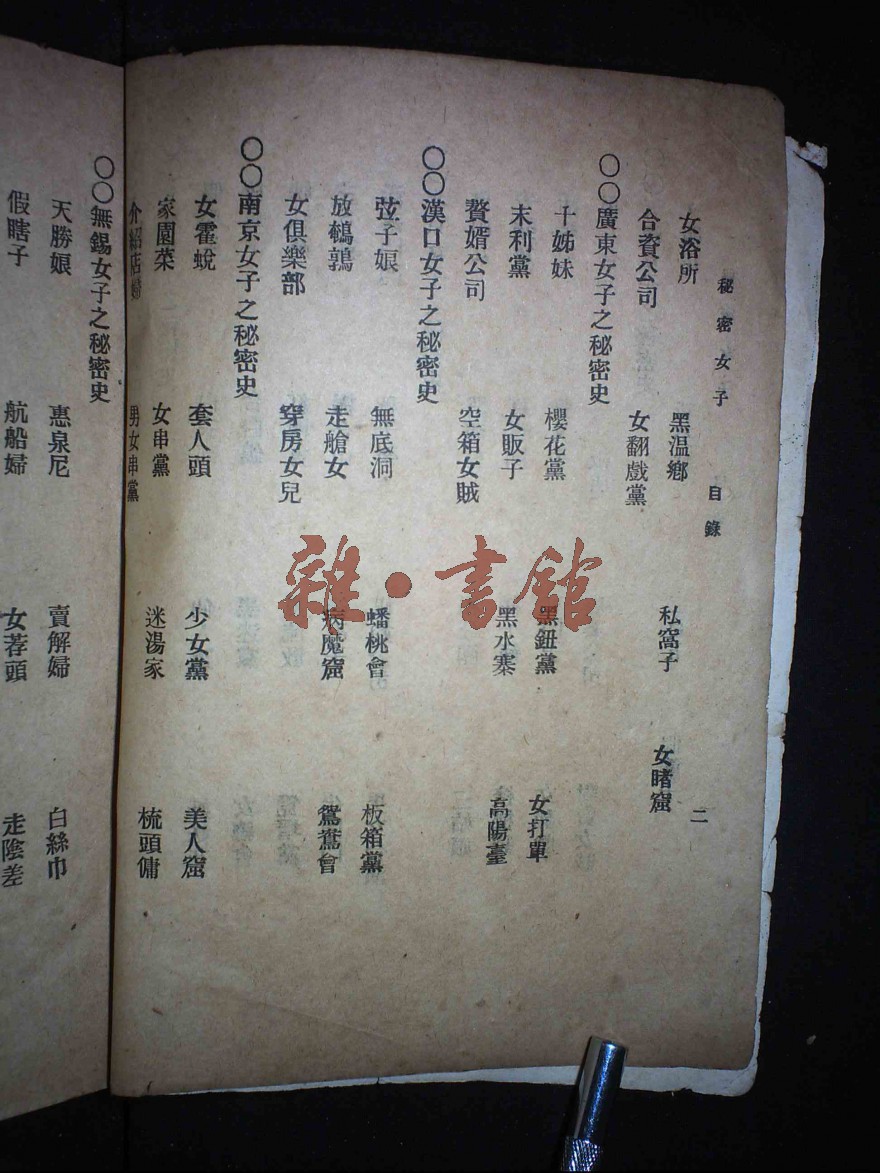 秘密女子 目錄 二
女浴所 黑温鄉 私窩子 女賭窟
合資公司 女翻戲黨
〇〇廣東女子之秘密史
十姊妹 櫻花黨 黑鈕黨 女打單
末利黨 女販子 黑水寨 高陽臺
贅婿公司 空箱女賊
〇〇漢口女子之秘密史
弦子娘 無底洞 蟠桃會 板箱黨
放鵪鶉 走艙女 病魔窟 鴛鴦會
女俱樂部 穿房女兒
〇〇南京女子之秘密史
女霍蛻 套人頭 少女黨 美人窟
家園菜 女串黨 迷湯家 梳頭傭
介紹店婦 男女串黨
〇〇無錫女子之秘密史
天勝娘 惠泉尼 賣解婦 白絲巾
假瞎子 航船婦 女荐頭 走陰差
雜·書館